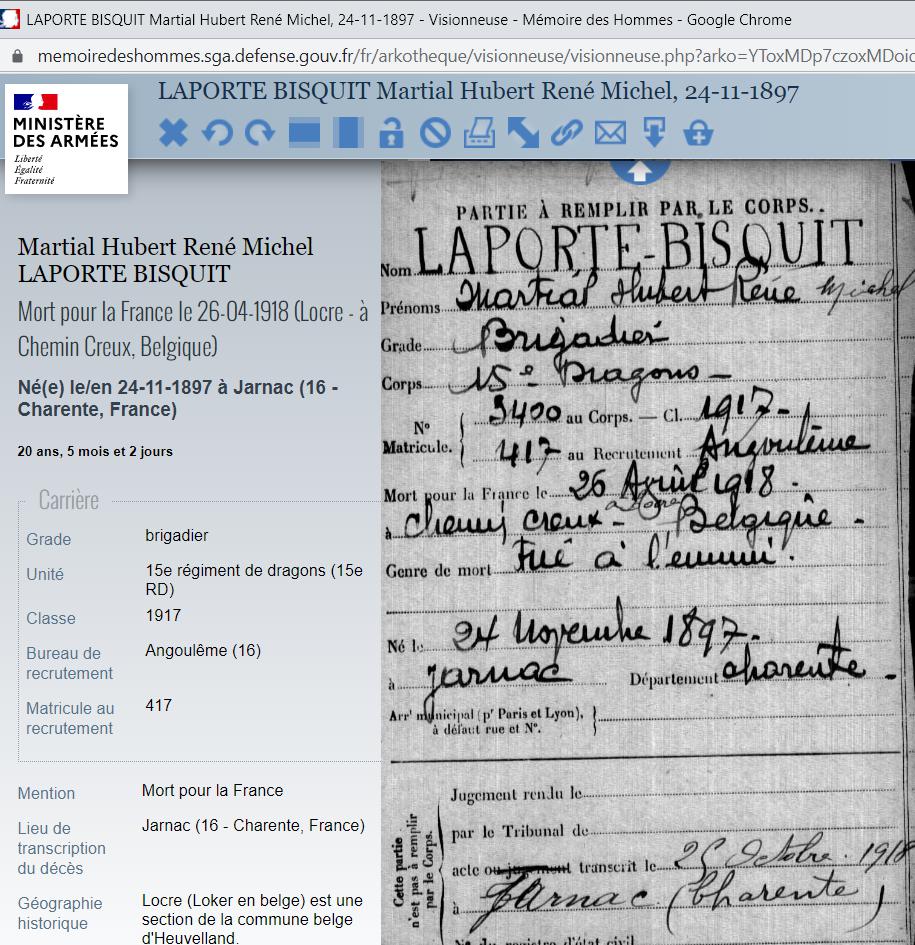 LAPORTE BISQUIT Martial Hubert René Michel, 24-11-1897 - Visionneuse - Mémoire des Hommes - Google Chrome
memoiredeshommes.sga.defense.gouv.fr/fr/arkotheque/visionneuse/visionneuse.php?arko=YToxMDp7czoxMDoic
LAPORTE BISQUIT Martial Hubert René Michel, 24-11-1897
MINISTÈRE
DES ARMÉES
Liberté
Égalité
Fraternité
Martial Hubert René Michel
LAPORTE BISQUIT
Mort pour la France le 26-04-1918 (Locre - à
Chemin Creux, Belgique)
Né(e) le/en 24-11-1897 à Jarnac (16 -
Charente, France)
20 ans, 5 mois et 2 jours
Carrière
Grade brigadier
Unité 15e régiment de dragons (15e
RD)
Classe 1917
Bureau de
recrutement Angoulême (16)
Matricule au
recrutement 417
Mention Mort pour la France
Lieu de
transcription
du décès Jarnac (16 - Charente, France)
Géographie
historique Locre (Loker en belge) est une
section de la commune belge
d'Heuvelland.
PARTIE À REMPLIR PAR LE CORPS.
Nom LAPORTE-BISQUIT
Prénoms Martial Hubert René Michel
Grade Brigadier
Corps 15e Dragons
N° Matricule. 3400 au Corps. — Cl. 1917
417 au Recrutement Angoulême
Mort pour la France le 26 Avril 1918
à Chemin creux - à Locre Belgique
Genre de mort Tué à l'ennemi
Né le 24 Novembre 1897
à Jarnac Département Charente
Arrt municipal (pr Paris et Lyon),
à défaut rue et N°.
Cette partie
n'est pas à remplir
par le Corps.
Jugement rendu le
par le Tribunal de
acte ou jugement transcrit le 25 Octobre 1918
à Jarnac (Charente)
N° du registre d'état civil